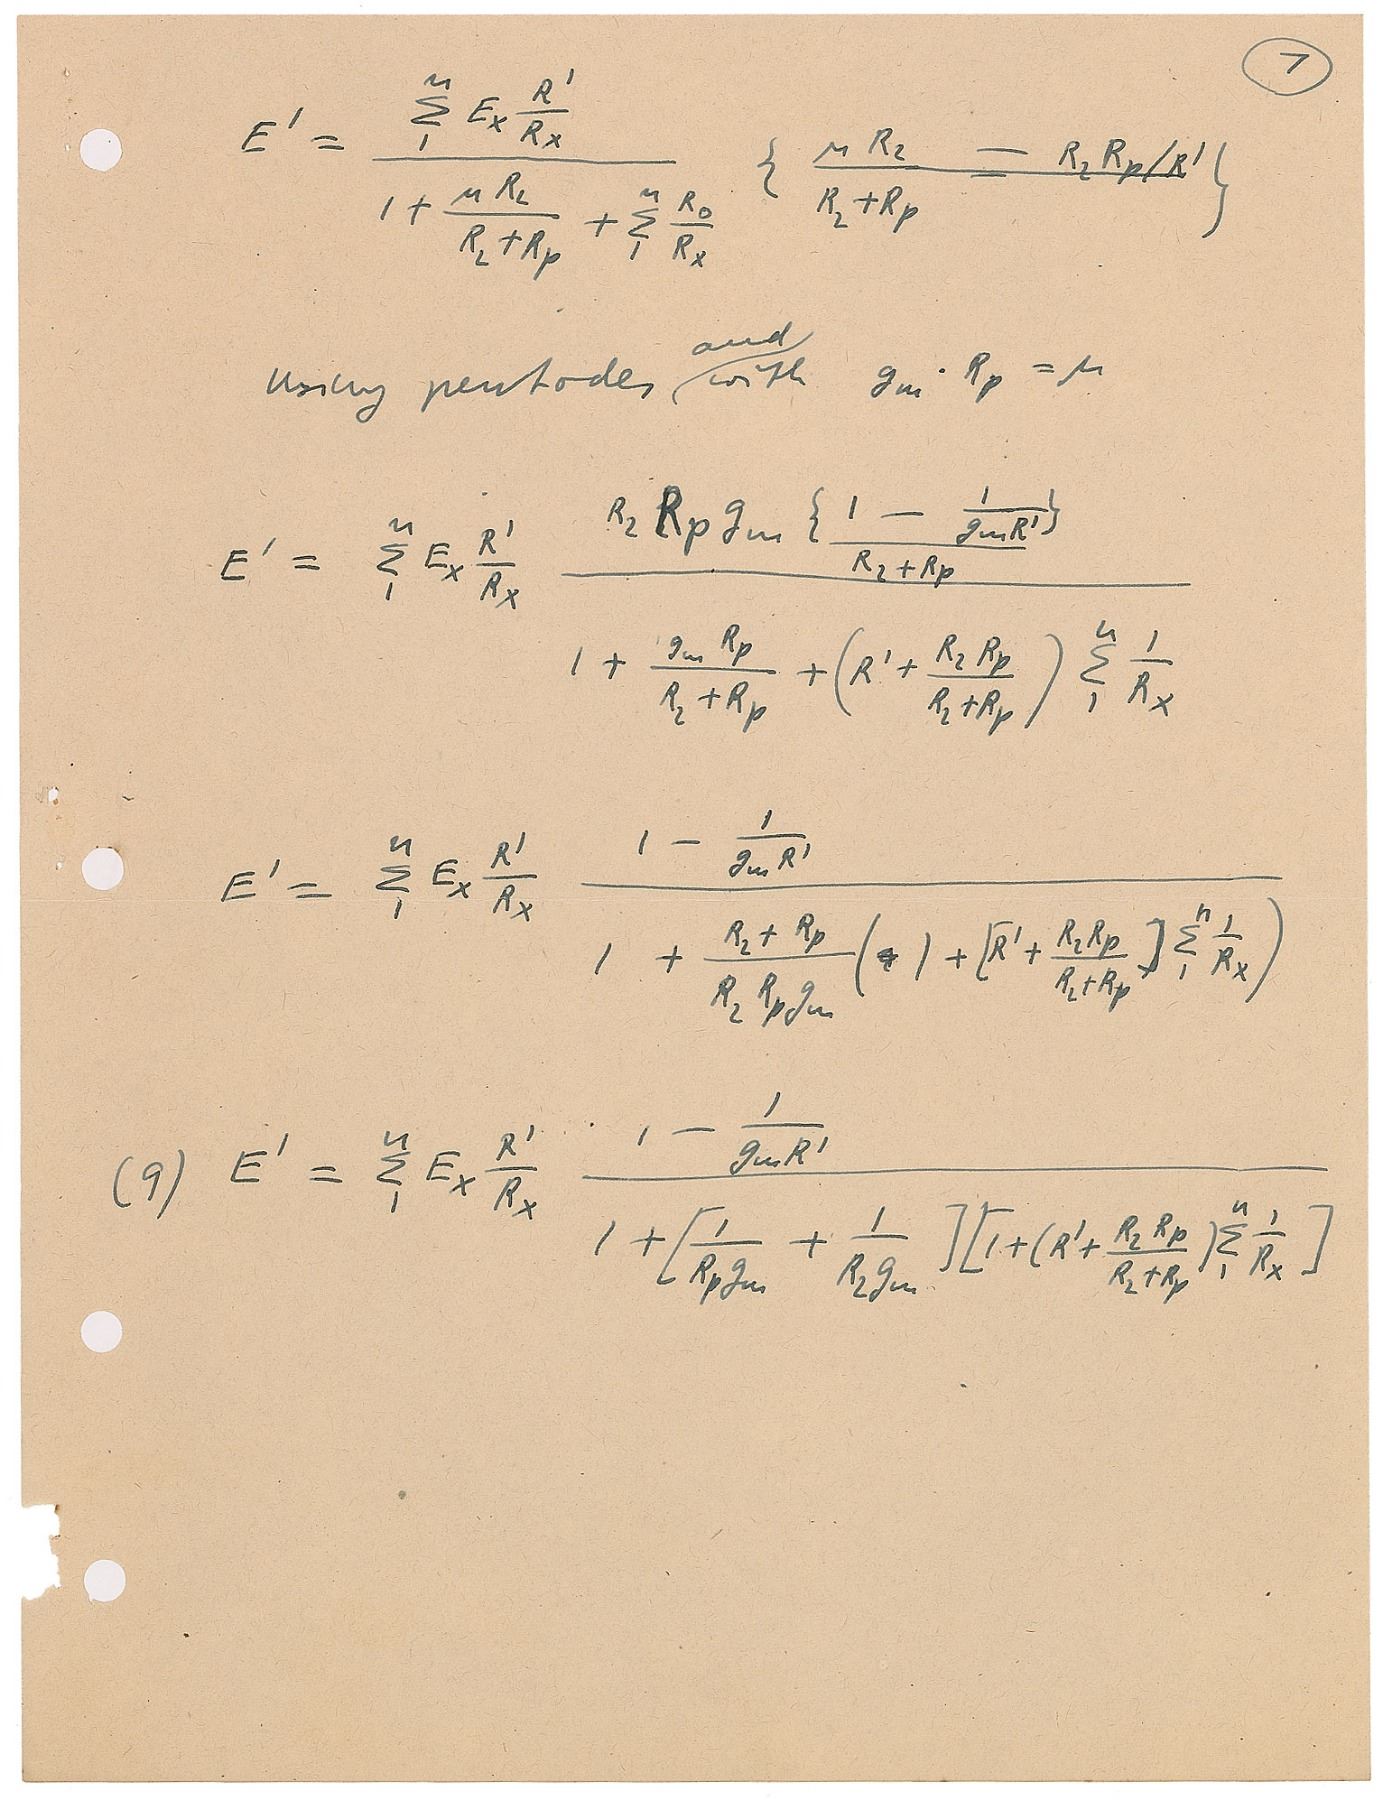 7
E' = \frac{\sum_1^n E_x \frac{R'}{R_x}}{1 + \frac{\mu R_2}{R_2 + R_p} + \sum_1^n \frac{R_0}{R_x}} \left\{ \frac{\mu R_2 - R_2 R_p / R'}{R_2 + R_p} \right\}
using pentodes and with g_m \cdot R_p = \mu
E' = \sum_1^n E_x \frac{R'}{R_x} \frac{\frac{R_2 R_p g_m \{ 1 - \frac{1}{g_m R'} \}}{R_2 + R_p}}{1 + \frac{g_m R_p}{R_2 + R_p} + \left( R' + \frac{R_2 R_p}{R_2 + R_p} \right) \sum_1^n \frac{1}{R_x}}
E' = \sum_1^n E_x \frac{R'}{R_x} \frac{1 - \frac{1}{g_m R'}}{1 + \frac{R_2 + R_p}{R_2 R_p g_m} ( 1 + [ R' + \frac{R_2 R_p}{R_2 + R_p} ] \sum_1^n \frac{1}{R_x} )}
(9) E' = \sum_1^n E_x \frac{R'}{R_x} \frac{1 - \frac{1}{g_m R'}}{1 + [ \frac{1}{R_p g_m} + \frac{1}{R_2 g_m} ] [ 1 + ( R' + \frac{R_2 R_p}{R_2 + R_p} ) \sum_1^n \frac{1}{R_x} ]}